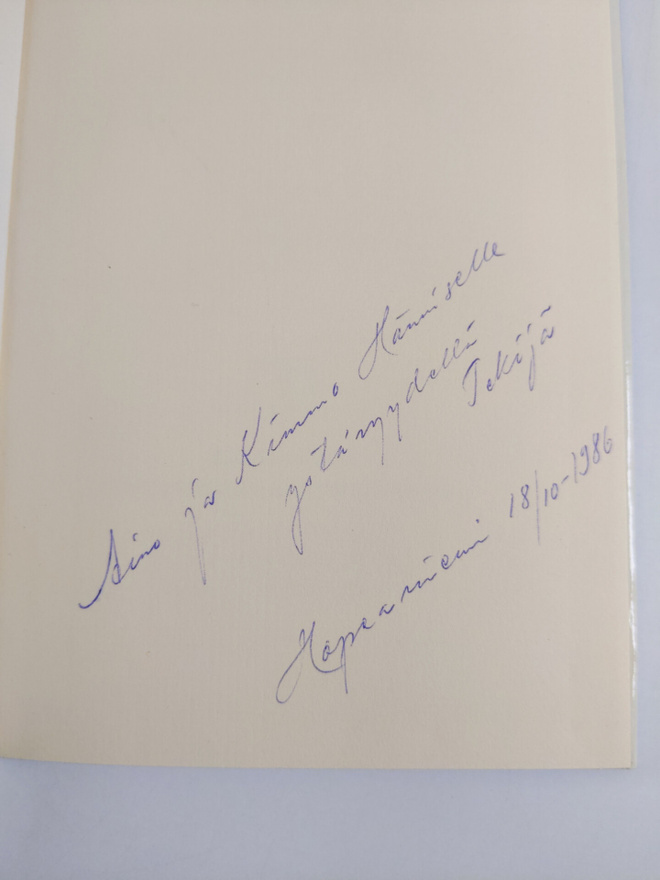 Aino ja Kimmo Hänniselle
ystävyydellä
Tekijä
Hopeaniemi 18/10-1986